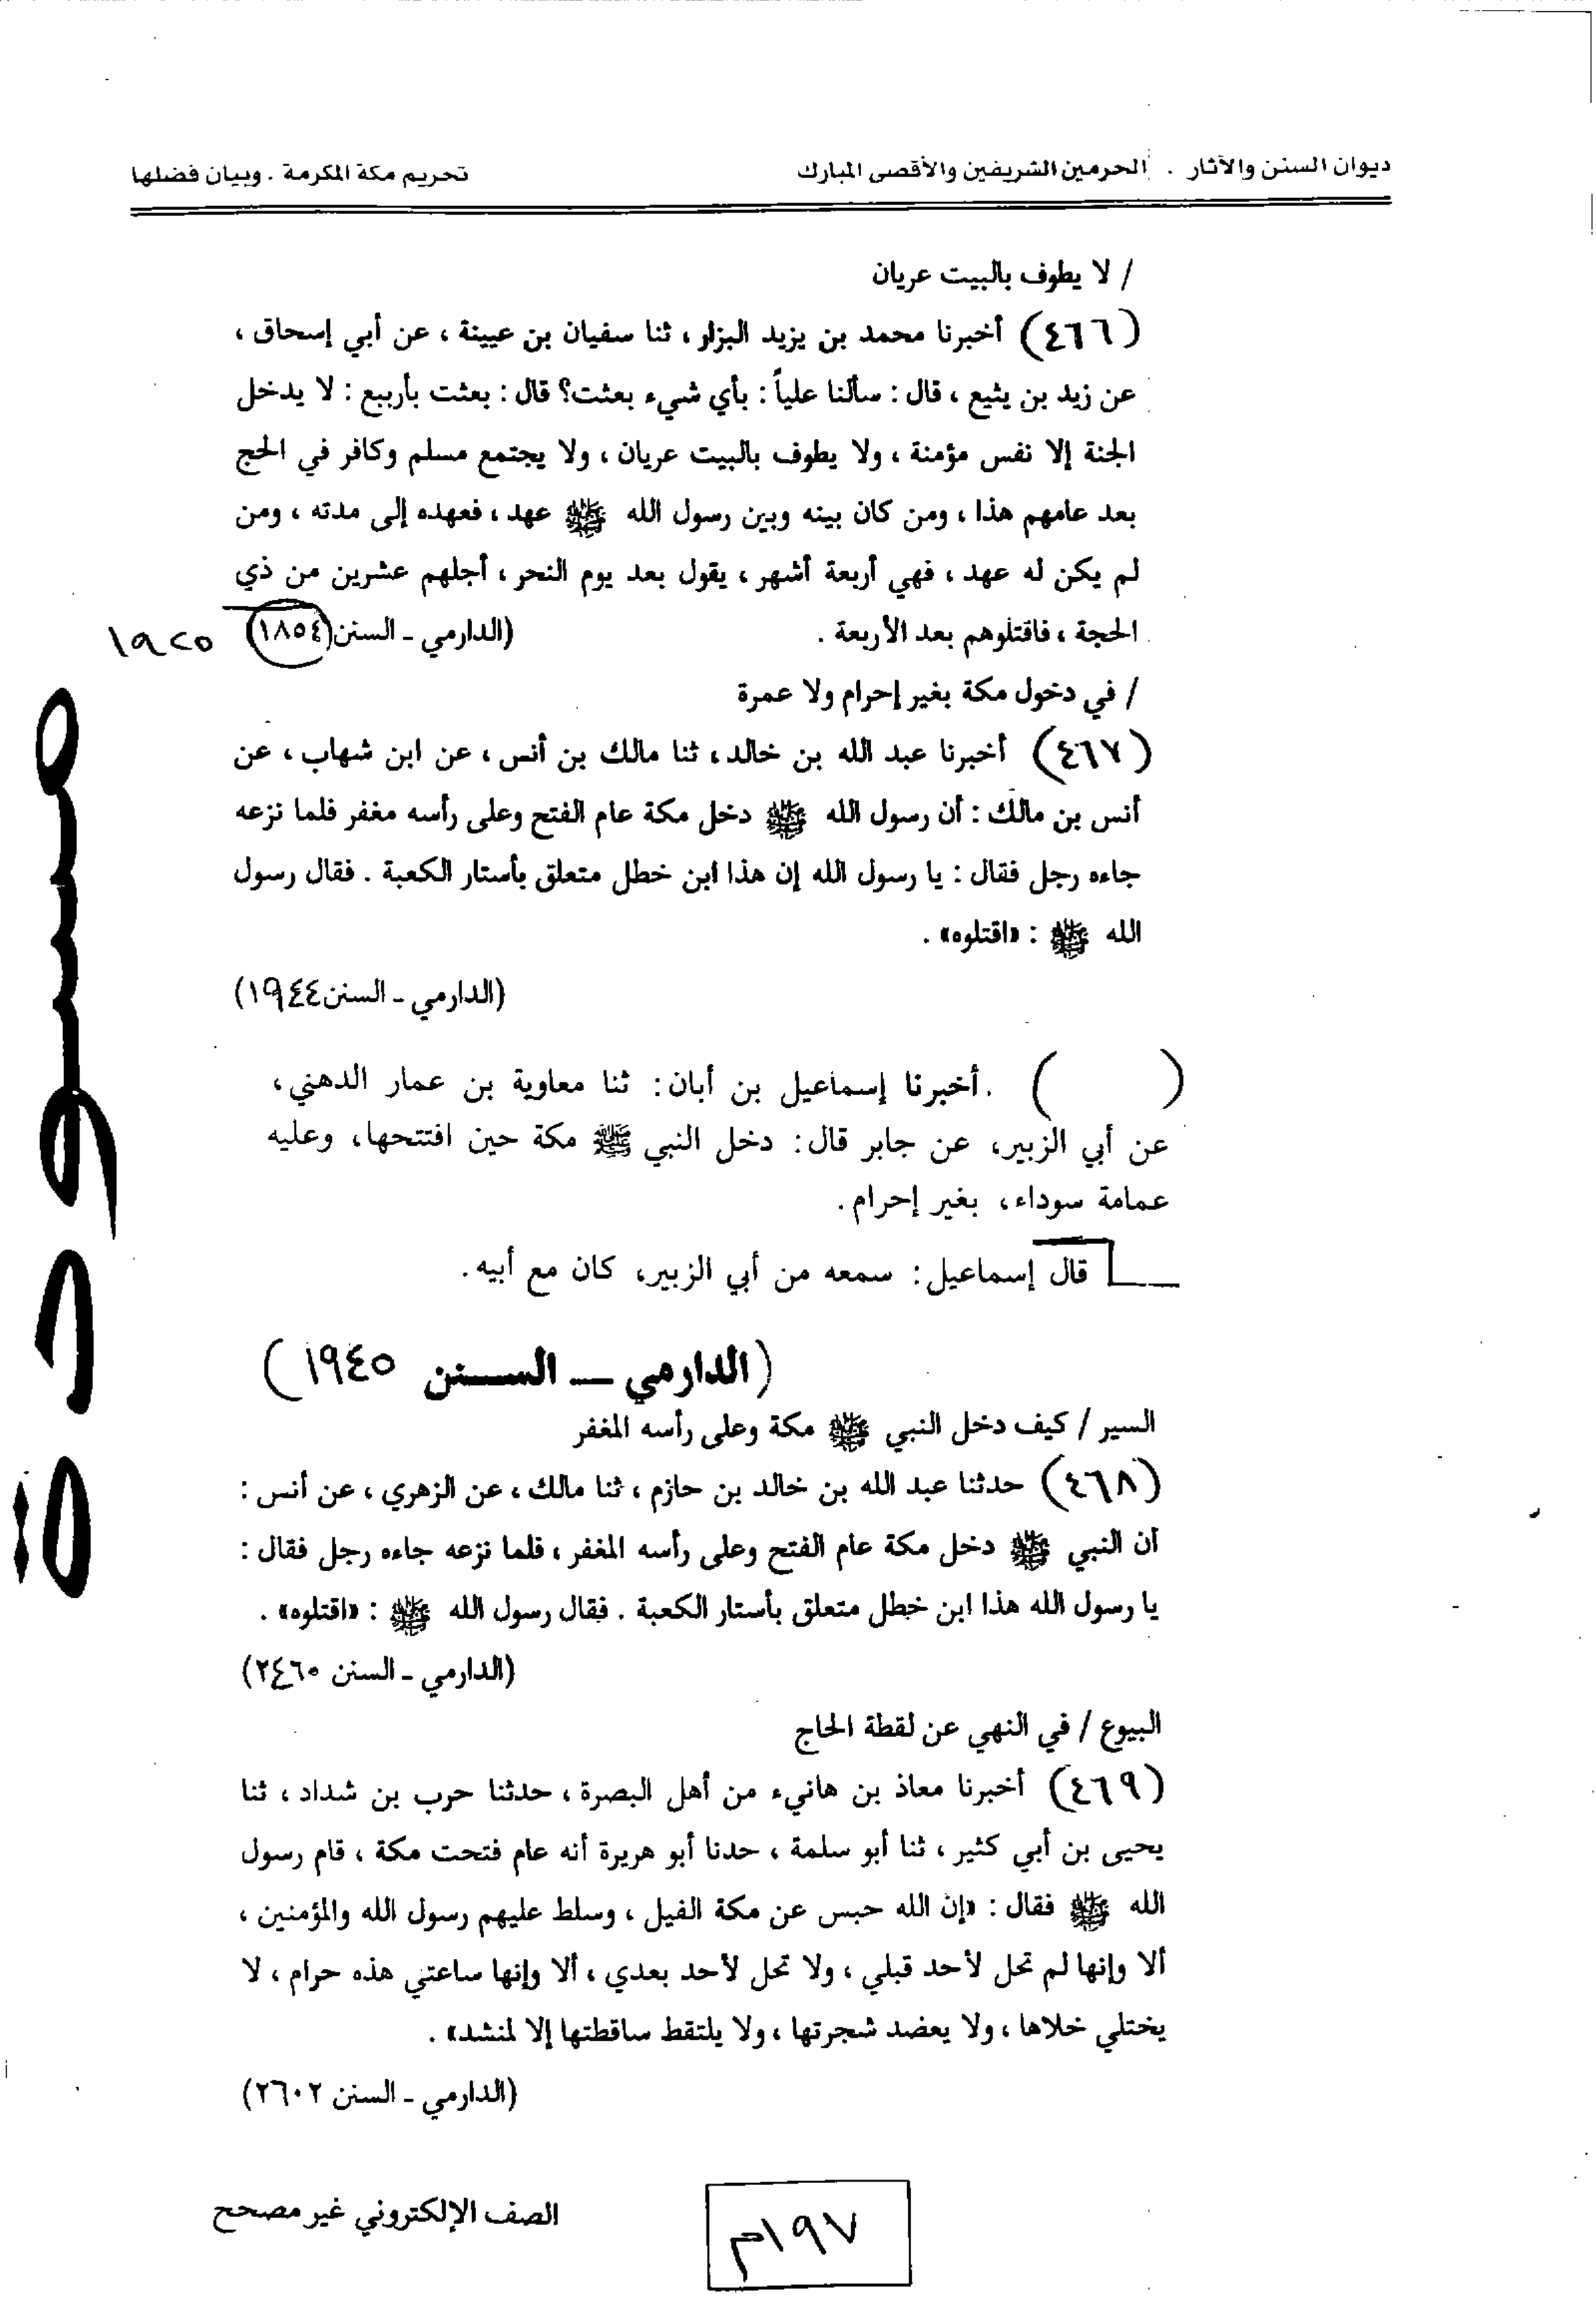 ديوان السنن والآثار . الحرمين الشريفين والأقصى المبارك
تحريم مكة المكرمة . وبيان فضلها
/ لا يطوف بالبيت عريان
(٤٦٦) أخبرنا محمد بن يزيد البزار ، ثنا سفيان بن عيينة ، عن أبي إسحاق ،
عن زيد بن يثيع ، قال : سألنا علياً : بأي شيء بعثت؟ قال : بعثت بأربع : لا يدخل
الجنة إلا نفس مؤمنة ، ولا يطوف بالبيت عريان ، ولا يجتمع مسلم وكافر في الحج
بعد عامهم هذا ، ومن كان بينه وبين رسول الله ﷺ عهد ، فعهده إلى مدته ، ومن
لم يكن له عهد ، فهي أربعة أشهر ، يقول بعد يوم النحر ، أجلهم عشرين من ذي
الحجة ، فاقتلوهم بعد الأربعة .
(الدارمي ـ السنن ١٨٥٤)
١٩٢٥
/ في دخول مكة بغير إحرام ولا عمرة
(٤٦٧) أخبرنا عبد الله بن خالد ، ثنا مالك بن أنس ، عن ابن شهاب ، عن
أنس بن مالك : أن رسول الله ﷺ دخل مكة عام الفتح وعلى رأسه مغفر فلما نزعه
جاءه رجل فقال : يا رسول الله إن هذا ابن خطل متعلق بأستار الكعبة . فقال رسول
الله ﷺ : «اقتلوه» .
(الدارمي ـ السنن ١٩٤٤)
( ) . أخبرنا إسماعيل بن أبان: ثنا معاوية بن عمار الدهني،
عن أبي الزبير، عن جابر قال: دخل النبي ﷺ مكة حين افتتحها، وعليه
عمامة سوداء، بغير إحرام.
قال إسماعيل: سمعه من أبي الزبير، كان مع أبيه.
(الدارمي ــ الســنن ١٩٤٥)
السير / كيف دخل النبي ﷺ مكة وعلى رأسه المغفر
(٤٦٨) حدثنا عبد الله بن خالد بن حازم ، ثنا مالك ، عن الزهري ، عن أنس :
أن النبي ﷺ دخل مكة عام الفتح وعلى رأسه المغفر ، فلما نزعه جاءه رجل فقال :
يا رسول الله هذا ابن خطل متعلق بأستار الكعبة . فقال رسول الله ﷺ : «اقتلوه» .
(الدارمي ـ السنن ٢٤٦٠)
البيوع / في النهي عن لقطة الحاج
(٤٦٩) أخبرنا معاذ بن هانيء من أهل البصرة ، حدثنا حرب بن شداد ، ثنا
يحيى بن أبي كثير ، ثنا أبو سلمة ، حدنا أبو هريرة أنه عام فتحت مكة ، قام رسول
الله ﷺ فقال : «إن الله حبس عن مكة الفيل ، وسلط عليهم رسول الله والمؤمنين ،
ألا وإنها لم تحل لأحد قبلي ، ولا تحل لأحد بعدي ، ألا وإنها ساعتي هذه حرام ، لا
يختلي خلاها ، ولا يعضد شجرتها ، ولا يلتقط ساقطتها إلا لمنشد» .
(الدارمي ـ السنن ٢٦٠٢)
الصف الإلكتروني غير مصحح
١٩٧م
مسودة